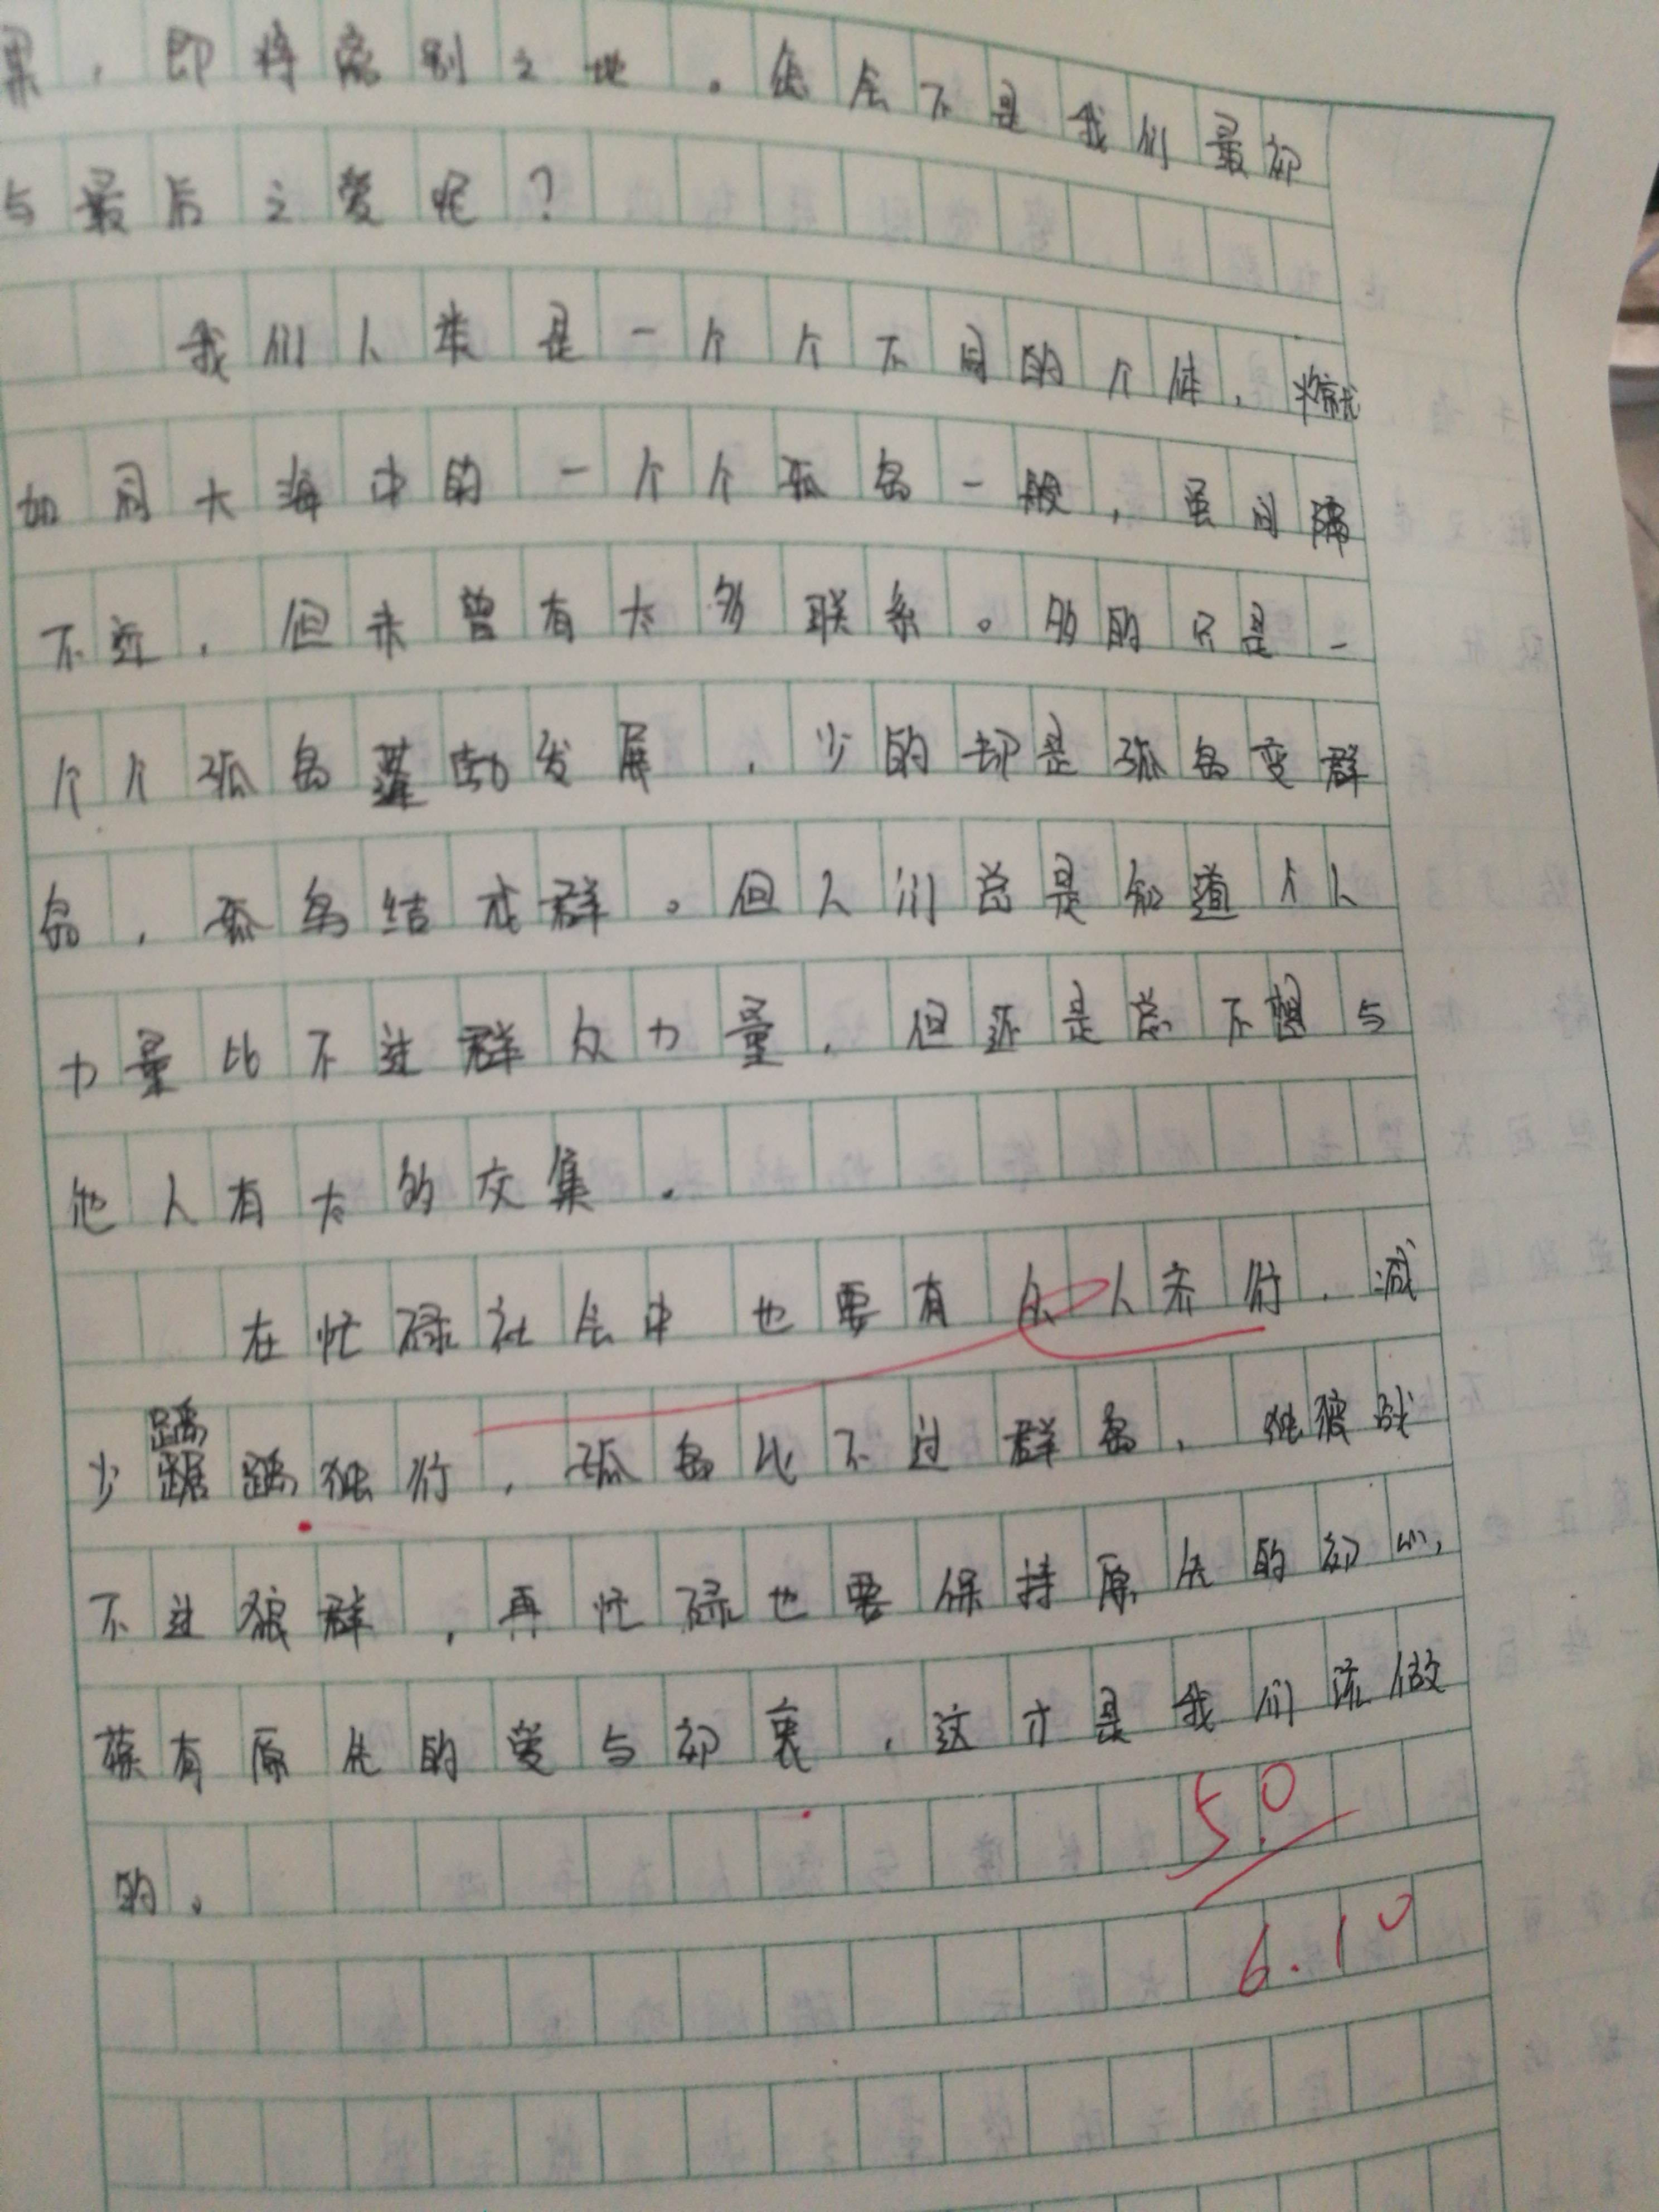 果，即将离别之地。怎会不是我们最初
与最后之爱呢？
我们人类是一个个不同的个体，将就
如同大海中的一个个孤岛一般，虽间隔
不近，但未曾有太多联系。多的只是一
个个孤岛蓬勃发展，少的却是孤岛变群
岛，孤岛结成群。但人们总是知道个人
力量比不过群众力量，但还是总不想与
他人有太多的交集。
在忙碌社会中也要有众人齐行，减
少踽踽独行，孤岛比不过群岛，独狼战
不过狼群，再忙碌也要保持原先的初心，
葆有原先的爱与初衷，这才是我们该做
的。
50
6.10